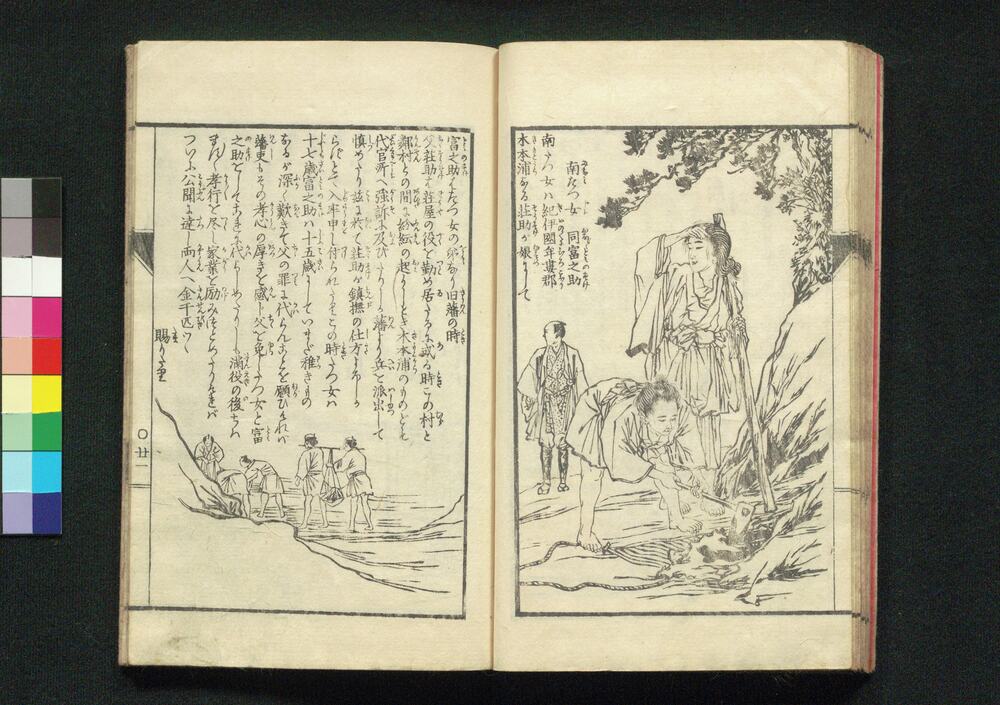 南たつ女 同富之助
南たつ女ハ紀伊國牟婁郡
木本浦なる荘助が娘にして
富之助はたつ女の弟なり旧藩の時
父荘助は荘屋の役を勤め居たるに或る時この村と
鄰村との間に紛紜の起りしとき木本浦のものども
代官所へ強訴に及びけりしかば藩より兵を派出して
慎めたり茲に於て荘助が鎮撫の仕方よろしか
らずとて入牢申し付られたりこの時たつ女ハ
十七歳富之助ハ十五歳にしていまだ稚きもの
なるが深く歎きて父の罪に代らんことを願ひければ
藩吏もその孝心の厚きを感じ父を免したつ女と富
之助としてこれに代らしめたりし満役の後ちハ
ます〳〵孝行を尽し家業を励みつとめたりければ
つひに公聞に達し両人へ金千匹づゝ
賜りたり
〇廿一